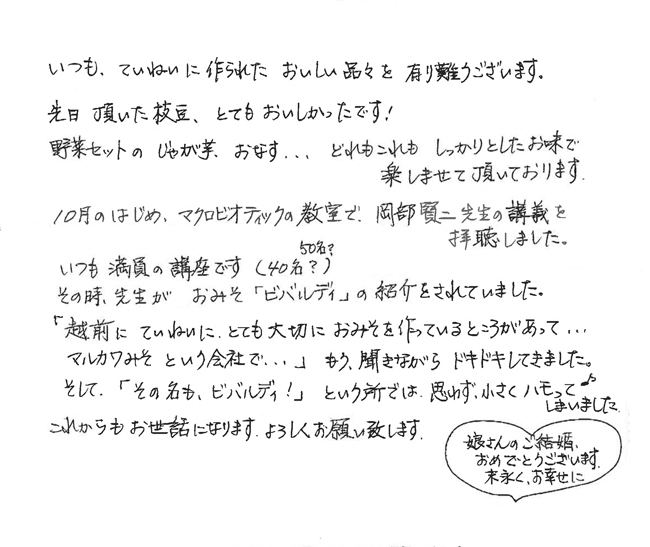 いつも、ていねいに作られた おいしい品々を 有り難うございます。
先日 頂いた枝豆、とてもおいしかったです!
野菜セットの じゃが芋、おなす... どれもこれも しっかりとしたお味で
楽しませて頂いております。
10月のはじめ、マクロビオティックの教室で、岡部賢二先生の講義を
拝聴しました。
50名?
いつも 満員の講座です(40名?)
その時、先生が おみそ「ビバルディ」の紹介をされていました。
「越前に ていねいに、とても大切に おみそを作っているところがあって...
マルカワみそ という会社で...」 もう、聞きながら ドキドキしてきました。
そして、「その名も、ビバルディ!」 という所では、思わず、小さく ハモって♪
しまいました。
これからもお世話になります。よろしくお願い致します。
娘さんのご結婚、
おめでとうございます。
末永く、お幸せに